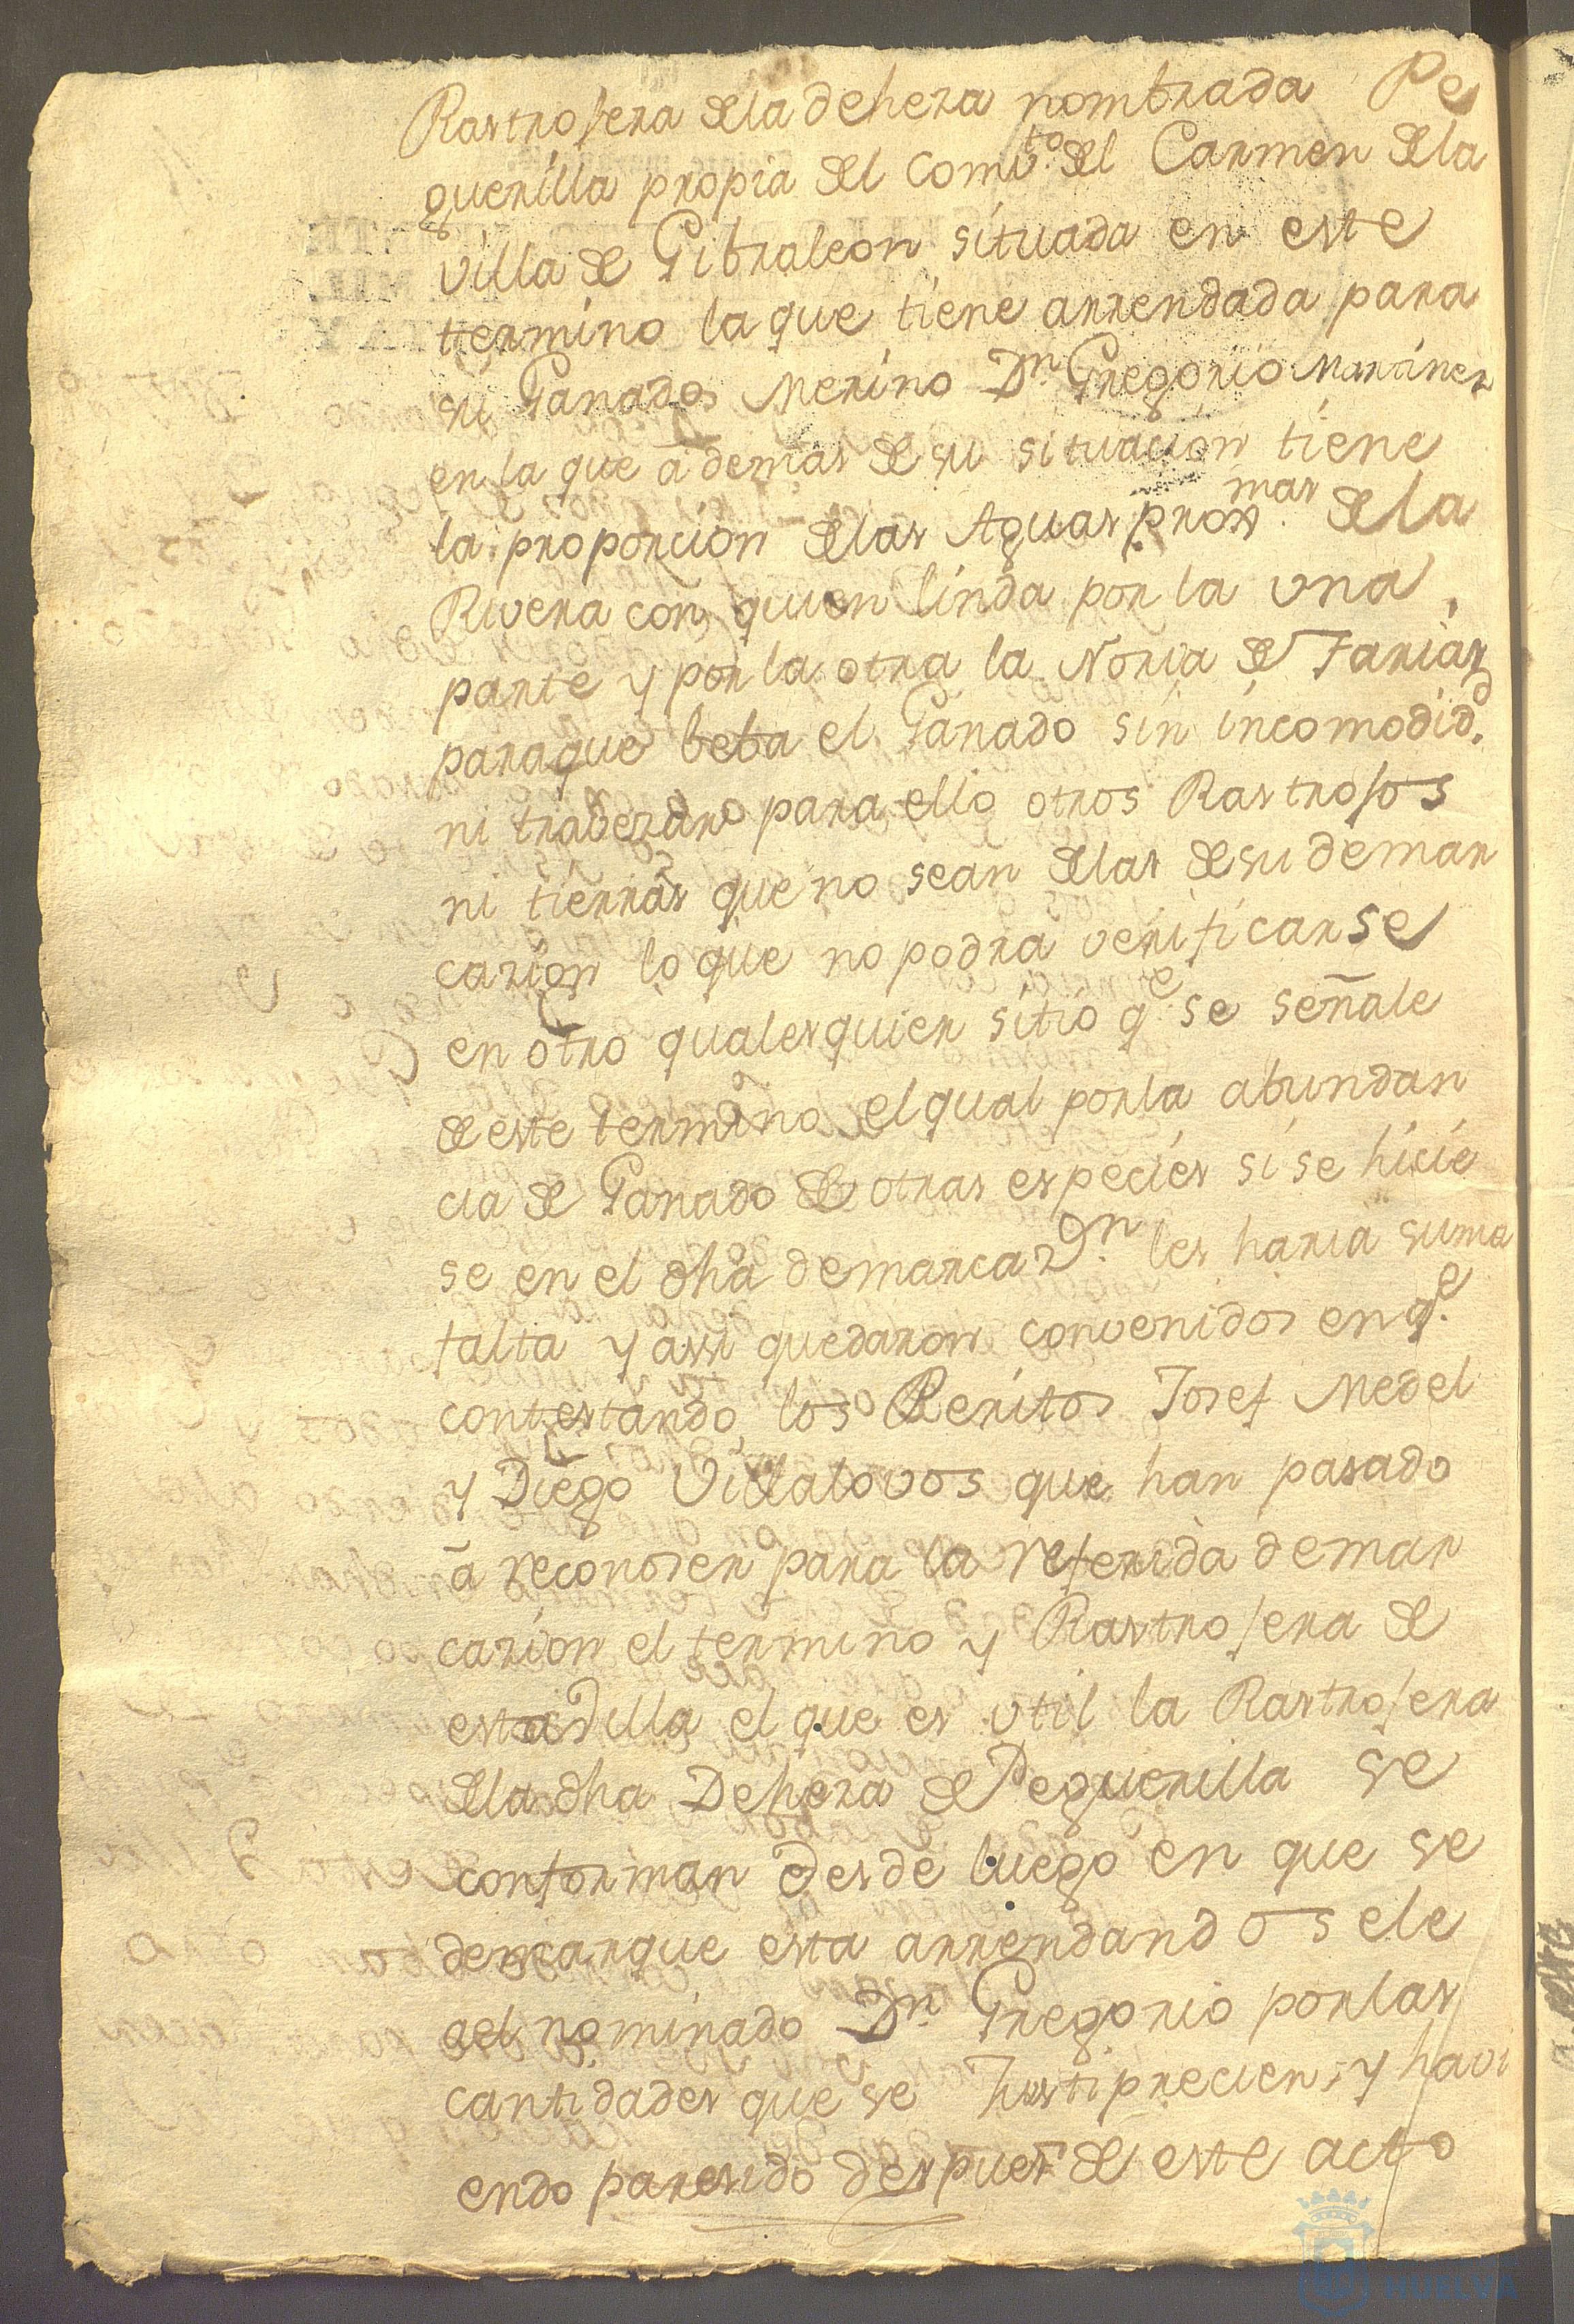 Rastrojera de la deheza nombrada Pe
guerilla propia del Comvto. del Carmen de la
villa de Gibraleon situada en este
termino la que tiene arrendada para
su Ganados Merino Dn. Gregorio Martinez
en la que ademas de su situacion tiene
la proporcion de las Aguas proxmas. de la
Rivera con quien linda por la una
parte y por la otra la Noria de Farias
paraque beba el Ganado sin incomodidd.
ni trabezar para ello otros Rastrojos
ni tierras que no sean de las de su demar
cazion lo que no podra verificarse
en otro qualesquier sitio qe. se señale
de este termino el qual por la abundan
cia de Ganado de otras especies si se hicie
se en el dha demarcazon. les haria suma
falta y assi quedaron convenidos en qe.
contestando los Peritos Josef Medel
y Diego Villalovos que han pasado
a reconoser para la referida demar
cazion el termino y Rastrojera de
esta Villa el que es util la Rastrojera
de la dha Deheza de Peguerilla se
conforman desde luego en que se
demarque esta arrendandosele
ael nominado Dn. Gregorio por las
cantidades que se Justiprecien, y havi
endo paresido despues de este acto
HUELVA